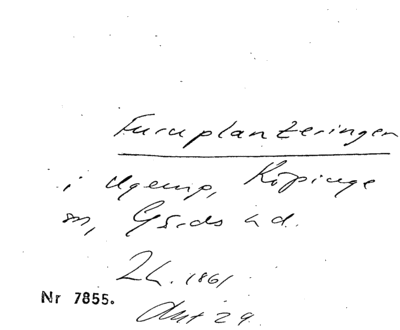 Furuplanteringen
i Ugerup, Köpinge
sn, Gärds hd.
Lh. 1861
Nr 7855.
Akt 29